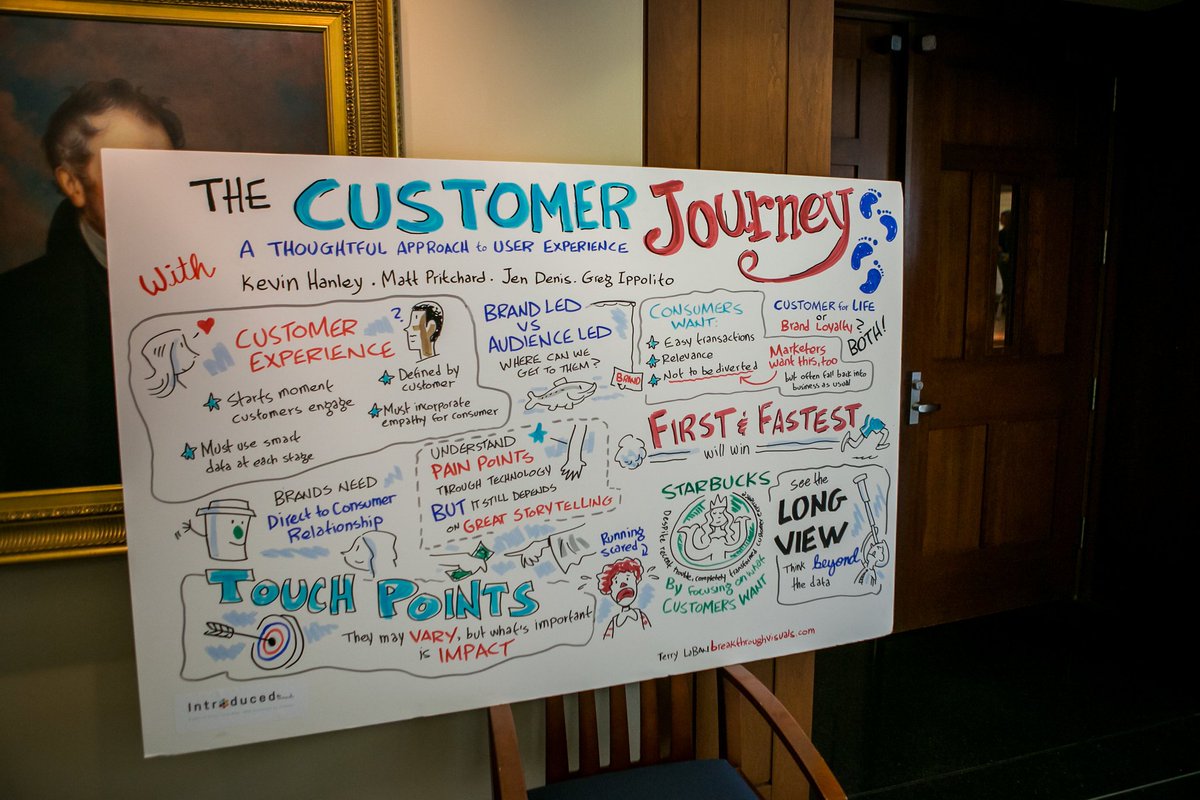 THE CUSTOMER Journey
A THOUGHTFUL APPROACH to USER EXPERIENCE
With
Kevin Hanley . Matt Pritchard . Jen Denis . Greg Ippolito
CUSTOMER
EXPERIENCE
?
Starts moment
customers engage
Must use smart
data at each stage
Defined by
customer
Must incorporate
empathy for consumer
BRAND LED
VS
AUDIENCE LED
WHERE CAN WE
GET TO THEM?
BRAND
CONSUMERS
WANT:
Easy transactions
Relevance
Not to be diverted
Marketers
want this, too
but often fall back into
business as usual
CUSTOMER for LIFE
or
Brand Loyalty?
BOTH!
FIRST & FASTEST
will win
BRANDS NEED
Direct to Consumer
Relationship
UNDERSTAND
PAIN POINTS
THROUGH TECHNOLOGY
BUT IT STILL DEPENDS
ON GREAT STORYTELLING
Running
scared?
STARBUCKS
Despite recent trouble, completely transformed customer
By focusing on what
CUSTOMERS WANT
See the
LONG
VIEW
Think beyond
the data
TOUCH POINTS
They may VARY, but what's important
is IMPACT
Terry LaBan breakthroughvisuals.com
Introduced